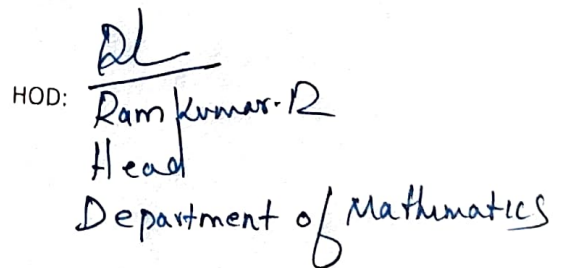 HOD:
Ramkumar.R
Head
Department of Mathematics